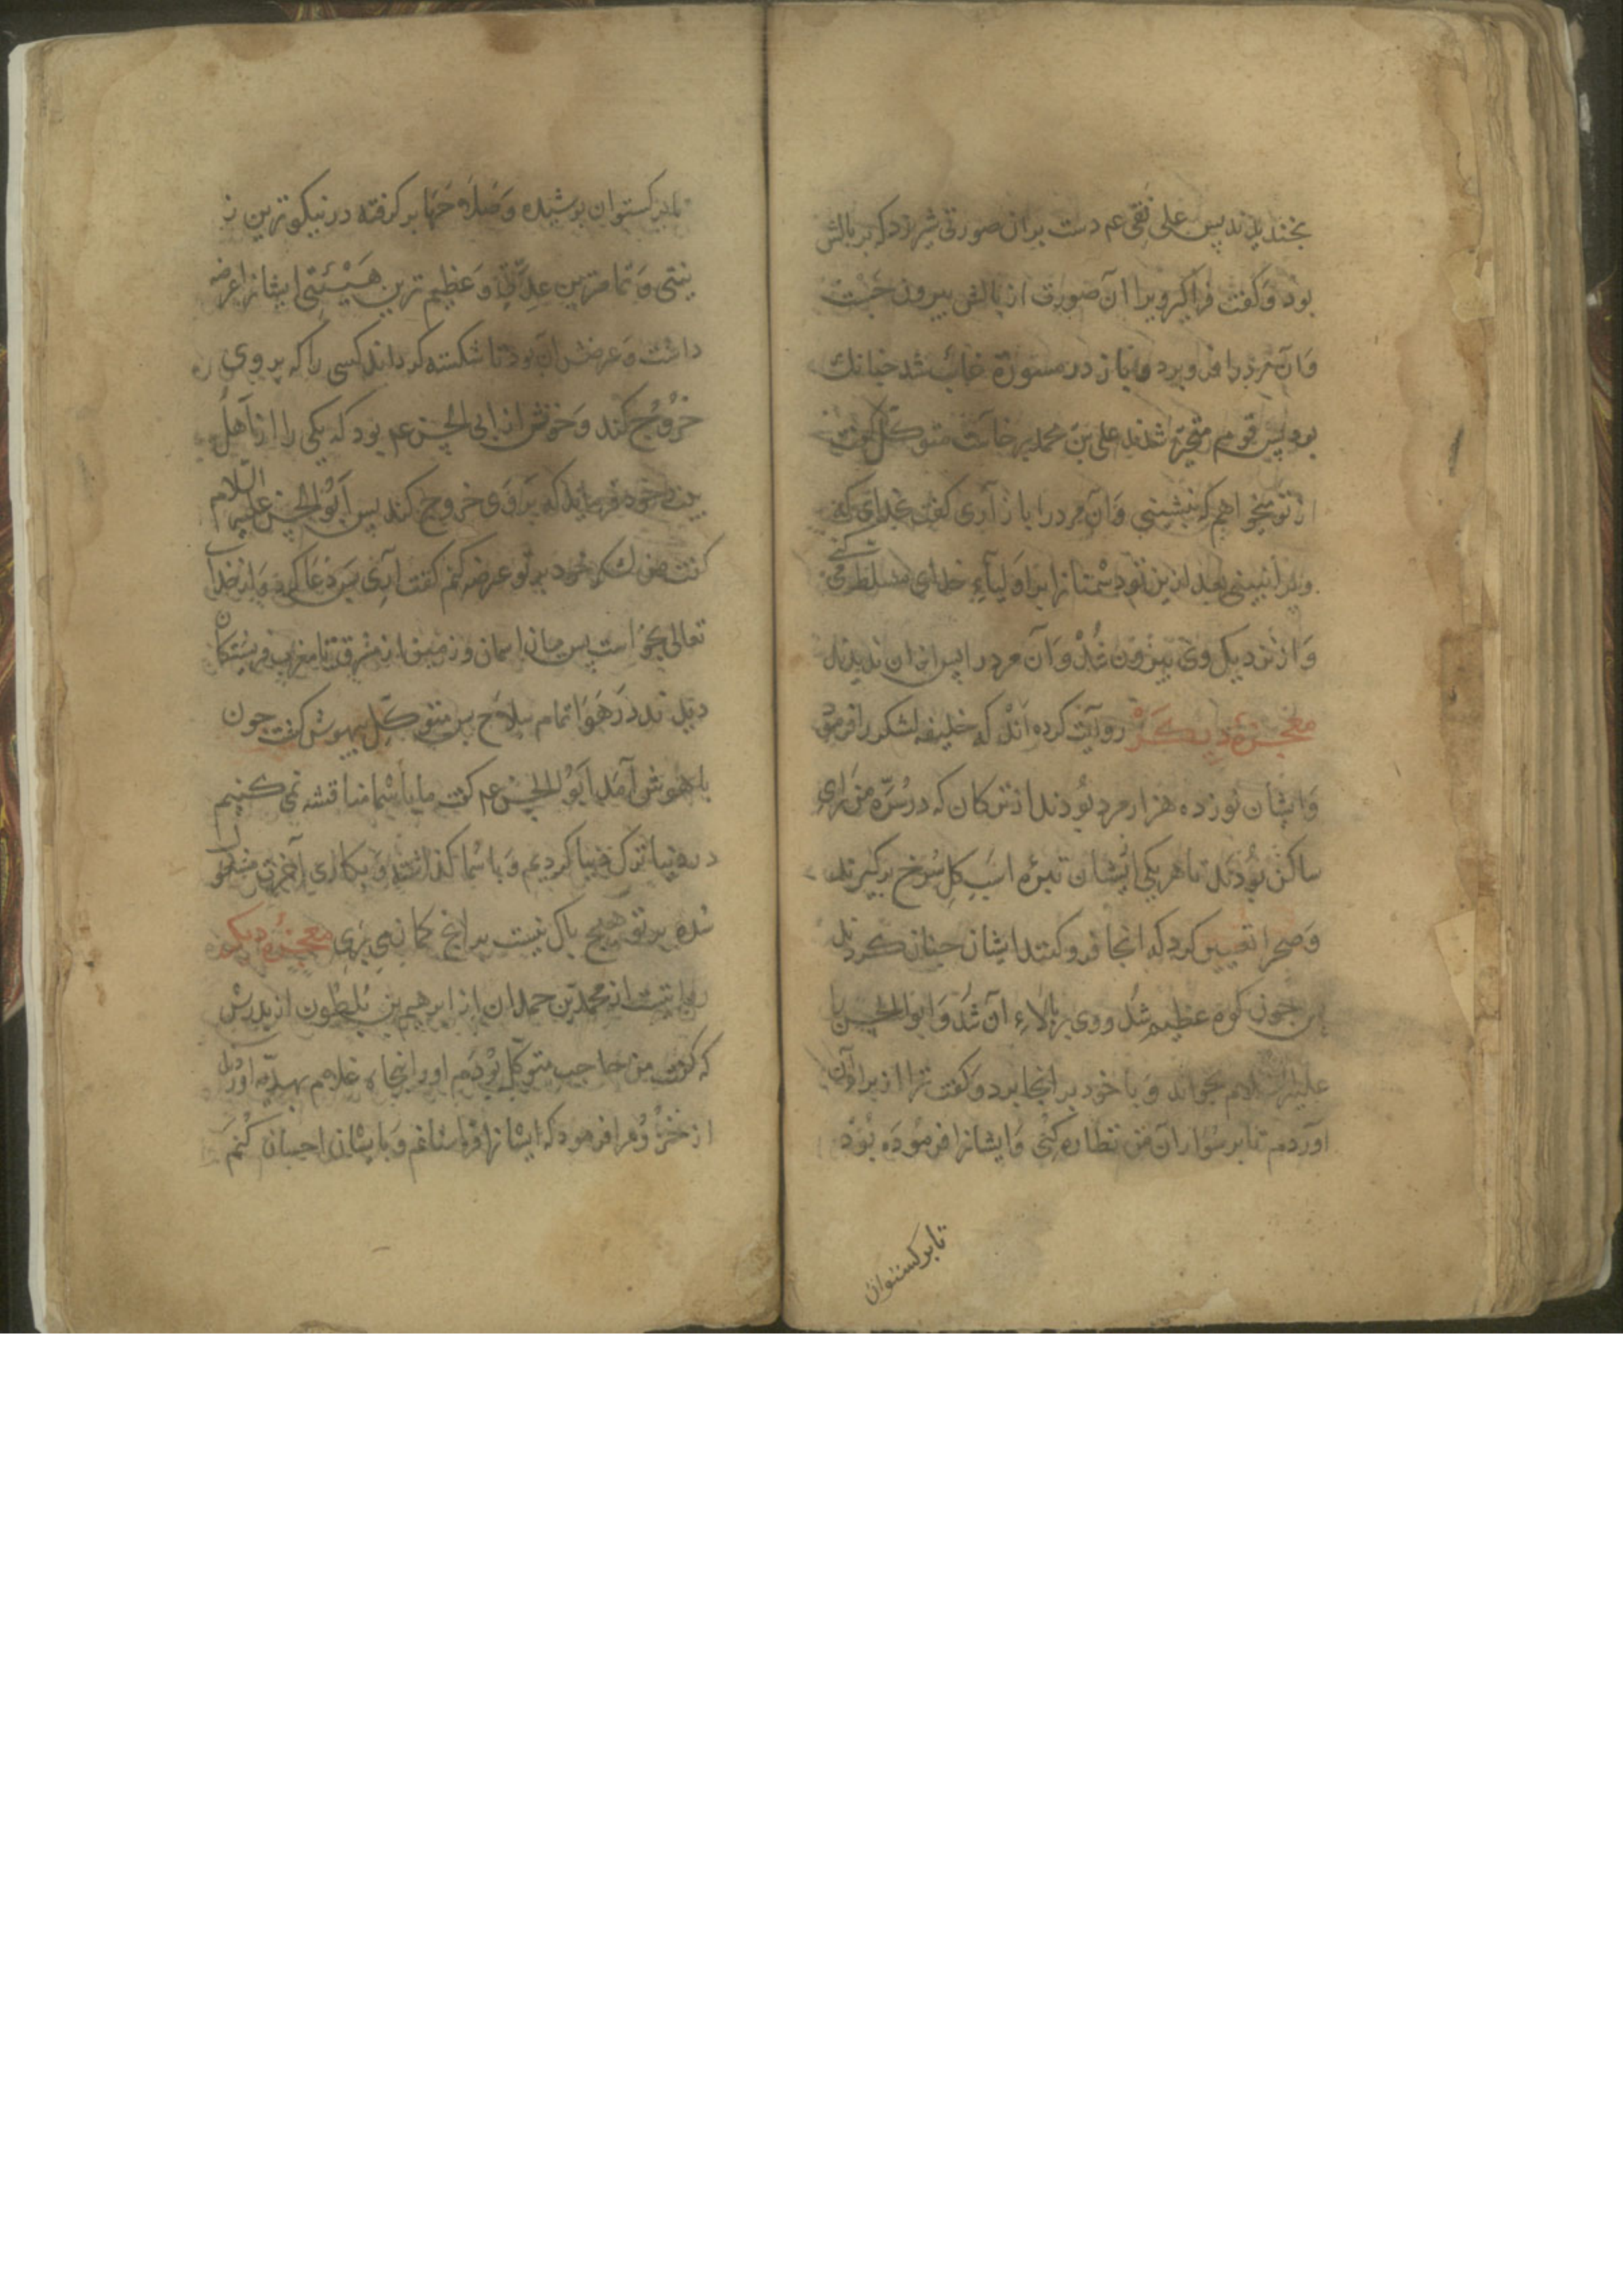 بخندیدند پس علی نقی عم دست بران صورتی شیر زد که بر بالش
بود و کفت فراکیر ویرا آن صورت از بالش بیرون جست
و آن مرد را فرو برد و باز در مسوره غائب شد جنانك
بود پس قوم متحیر شدند علی بن محمد بر خاست متوکل کفت
از تو میخواهم که بنشینی و آن مرد را باز آری کفت بخدای که
ویرا نبینی بعد ازین تو دشمنانرا بر اولیاء خدای مسلط می کنی
و از نزدیك وی بیرون شد و آن مرد را پس ازان ندیدند
معجزه دیکر روایت کرده اند که خلیفه لشکر را فرمود
و ایشان نوزده هزار مرد بودند از ترکان که در سر من رای
ساکن بودند تا هر یکی ایشان تبره اسب کل سرخ برکیرند
و صحرا تعیین کرد که انجا فرو کنند ایشان جنان کردند
بس جون کوه عظیم شد و وی بر بالاء آن شد و ابو الحسن را
علیه السلام بخواند و با خود بر انجا برد و کفت ترا از برای آن
آوردم تا بر سواران من نظاره کنی و ایشانرا فرموده بود
تا برکستوان
تا برکستوان پوشیده و سلاحها بر کرفته در نیکوترین ز
ینتی و تمامترین عدتی و عظیم ترین هیئتی ایشانرا عرضه
داشت و غرضش آن بود تا شکسته کرداند کسی را که بر وی
خروج کند و خوفش از ابی الحسن عم بود که یکی را از اهل
بیت خود فرماید که بر وی خروج کند پس ابو الحسن علیه السلام
کفت من لشکر خود بر تو عرضه کنم کفت آری پس دعا کرد و از خدا
تعالی بخواست پس میان اسمان و زمین از مشرق تا مغرب فریشتکان
دیدند در هوا تمام سلاح پس متوکل بیهوش کشت جون
با هوش آمد ابو الحسن عم کفت ما با شما مناقشه نمی کنیم
در دنیا ترك دنیا کردیم و با شما کذاشته و بکاری آخرت مشغول
شده بر تو هیچ باك نیست بر انج کمان می بری معجزه دیکر
روایتست از محمد بن حمدان از ابرهیم بن بلطون از پدرش
که کفت من حاجب متوکل بودم او را پنجاه غلام بهدیه اوردند
از خزر و مرا فرمود که ایشانرا فرا ستانم و با یشان احسان کنم